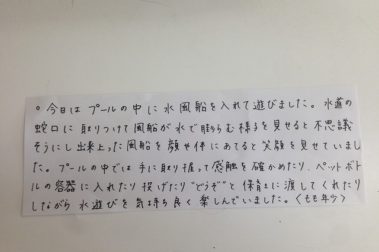 ○今日はプールの中に水風船を入れて遊びました。水道の
蛇口に取りつけて風船が水で膨らむ様子を見せると不思議
そうにし出来上った風船を顔や体にあてると笑顔を見せていまし
た。プールの中では手に取り握って感触を確かめたり、ペットボト
ルの容器に入れたり投げたり"どうぞ"と保育士に渡してくれたり
しながら水遊びを気持ち良く楽しんでいました。〈もも年少〉